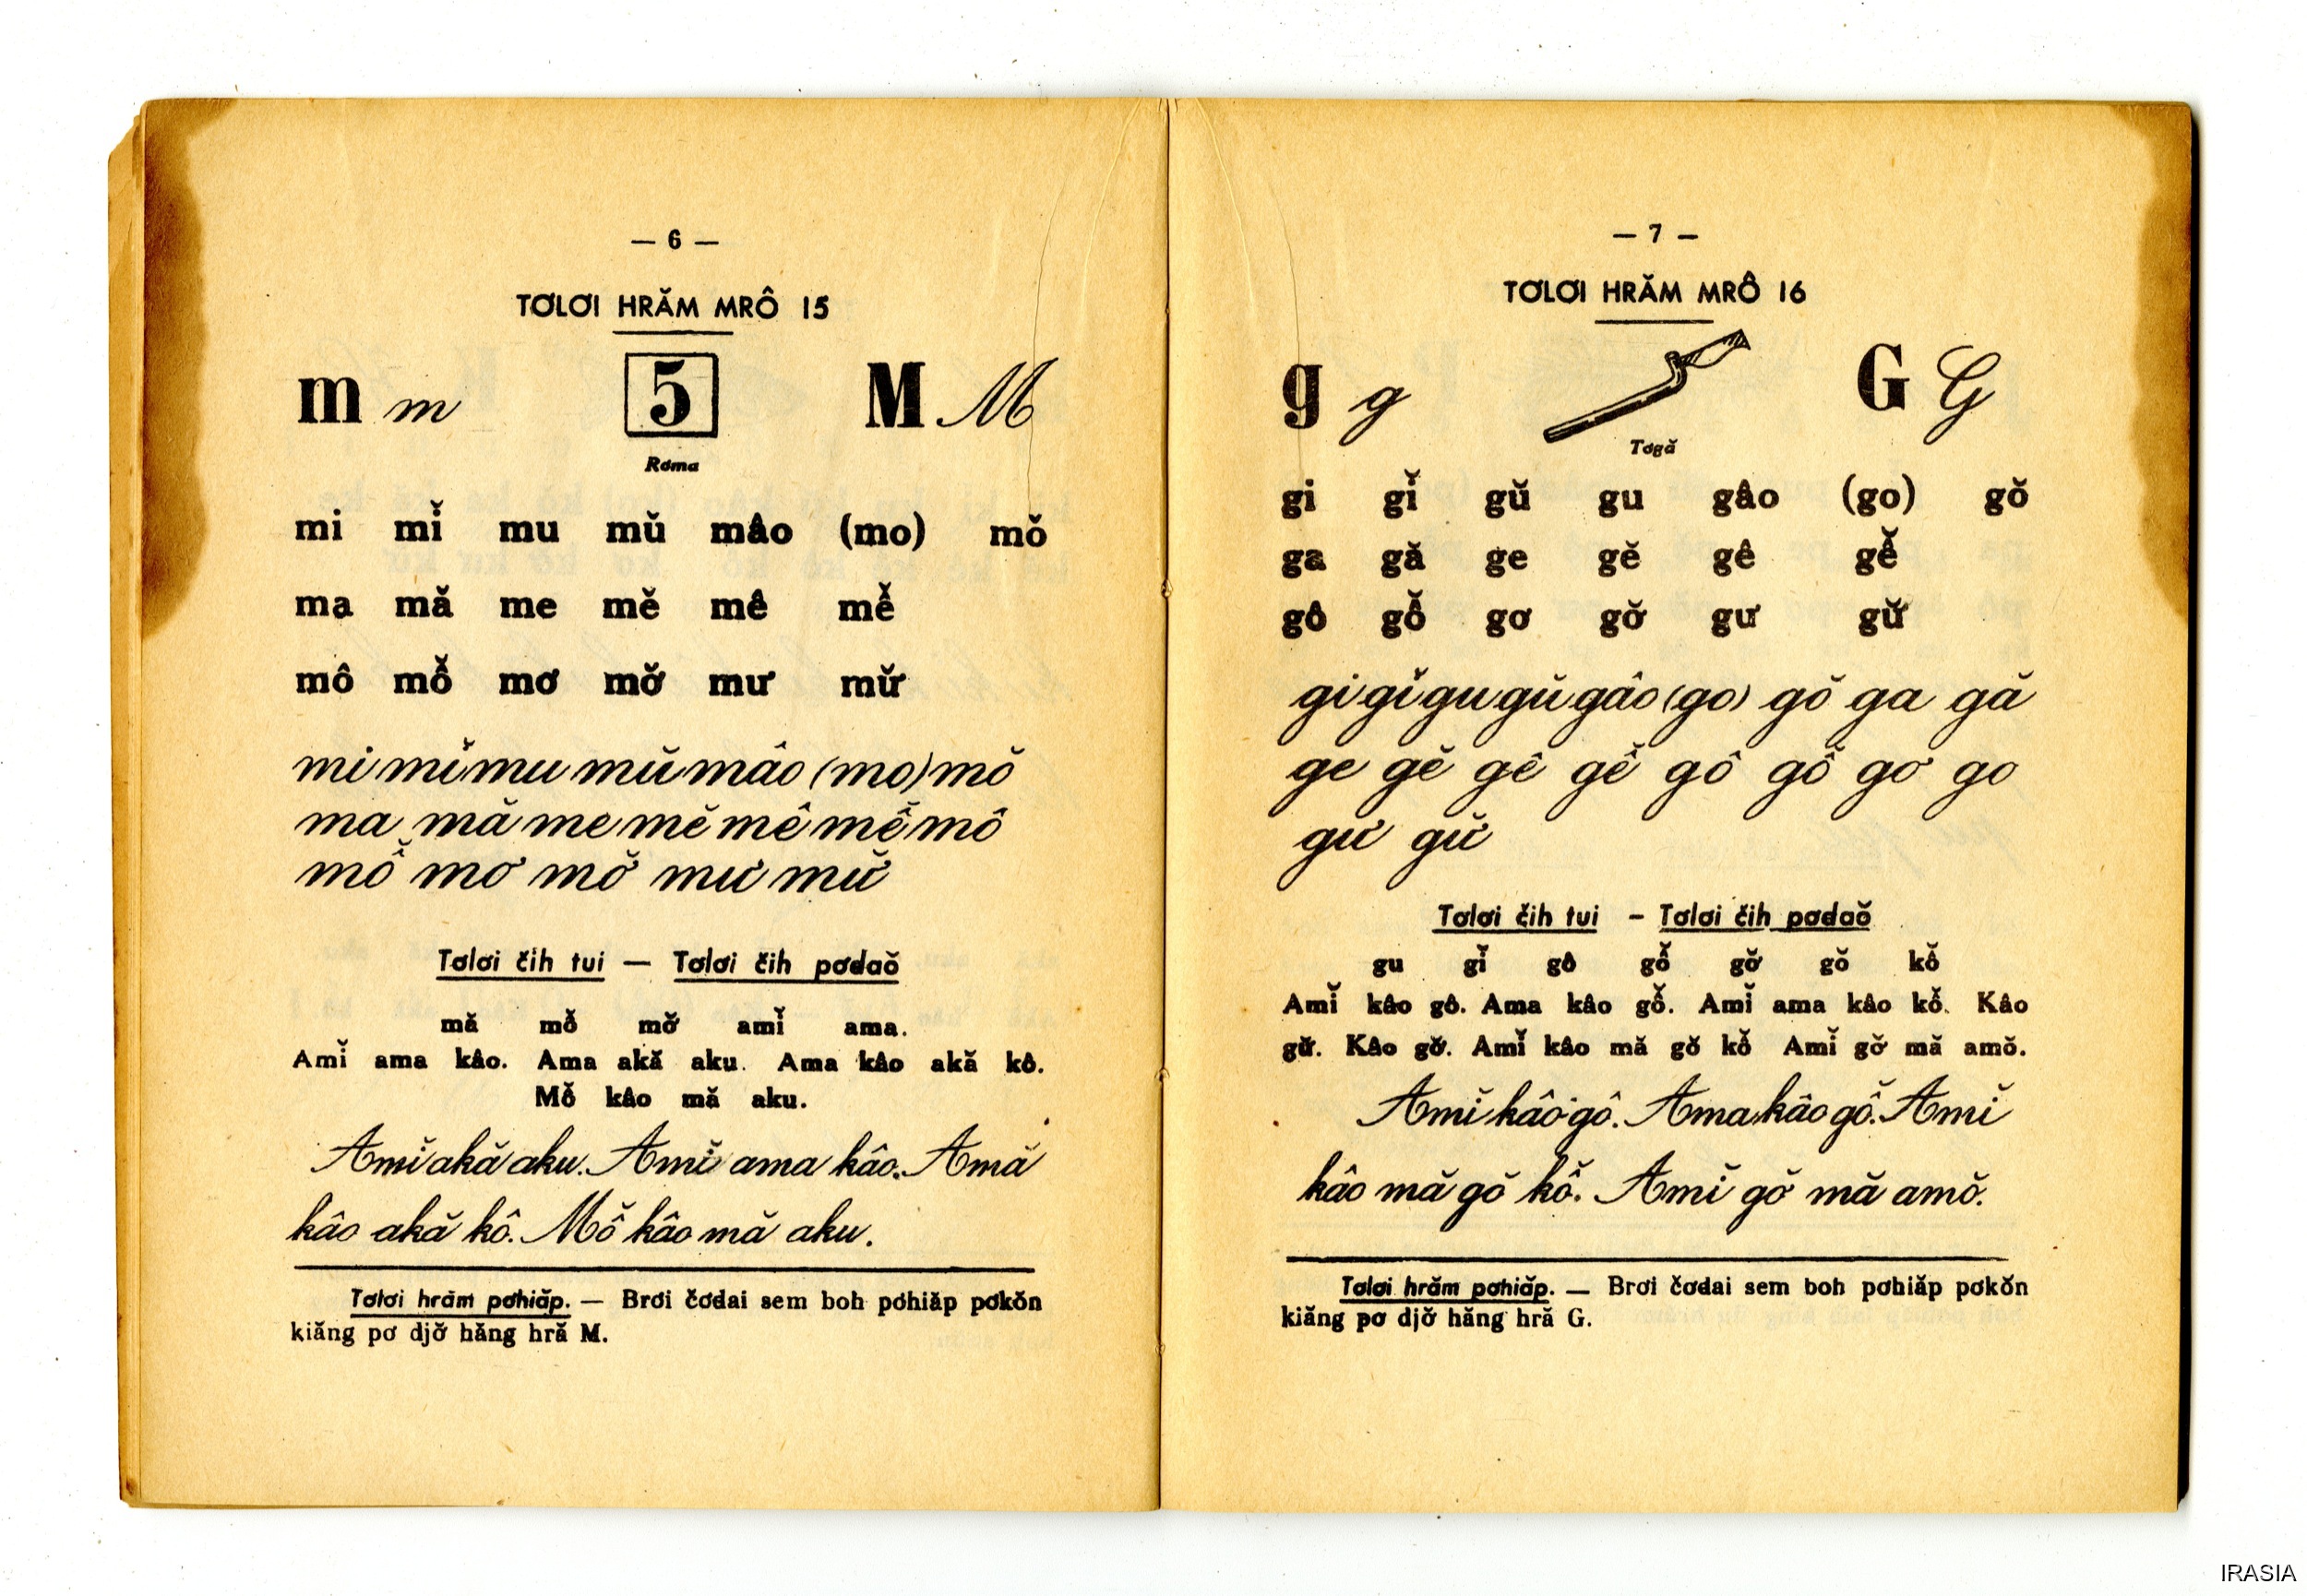 — 6 —
TƠLƠI HRĂM MRÔ 15
m m 5 M M
Rơma
mi mĭ mu mŭ mâo (mo) mŏ
ma mă me mĕ mê mê̆
mô mô̆ mơ mơ̆ mư mư̆
mi mĭ mu mŭ mâo (mo) mŏ
ma mă me mĕ mê mê̆ mô
mô̆ mơ mơ̆ mư mư̆
Tơlơi čih tui — Tơlơi čih pơdaŏ
mă mô̆ mơ̆ amĭ ama.
Amĭ ama kâo. Ama akă aku. Ama kâo akă kô.
Mô̆ kâo mă aku.
Amĭ akă aku. Amĭ ama kâo. Amă
kâo akă kô. Mô̆ kâo mă aku.
Tơlơi hrăm pơhiăp. — Brơi čơdai sem boh pơhiăp pơkŏn
kiăng pơ djơ̆ hăng hră M.
— 7 —
TƠLƠI HRĂM MRÔ 16
g g G G
Tơgă
gi gĭ gŭ gu gâo (go) gŏ
ga gă ge gĕ gê gê̆
gô gô̆ gơ gơ̆ gư gư̆
gi gĭ gu gŭ gâo (go) gŏ ga gă
ge gĕ gê gê̆ gô gô̆ gơ go
gư gư̆
Tơlơi čih tui – Tơlơi čih pơdaŏ
gu gĭ gô gô̆ gơ̆ gŏ kô̆
Amĭ kâo gô. Ama kâo gô̆. Amĭ ama kâo kô̆. Kâo
gư̆. Kâo gơ̆. Amĭ kâo mă gŏ kô̆ Amĭ gơ̆ mă amŏ.
Amĭ kâo gô. Ama kâo gô̆. Amĭ
kâo mă gŏ kô̆. Amĭ gơ̆ mă amŏ.
Tơlơi hrăm pơhiăp. — Brơi čơdai sem boh pơhiăp pơkŏn
kiăng pơ djơ̆ hăng hră G.
IRASIA